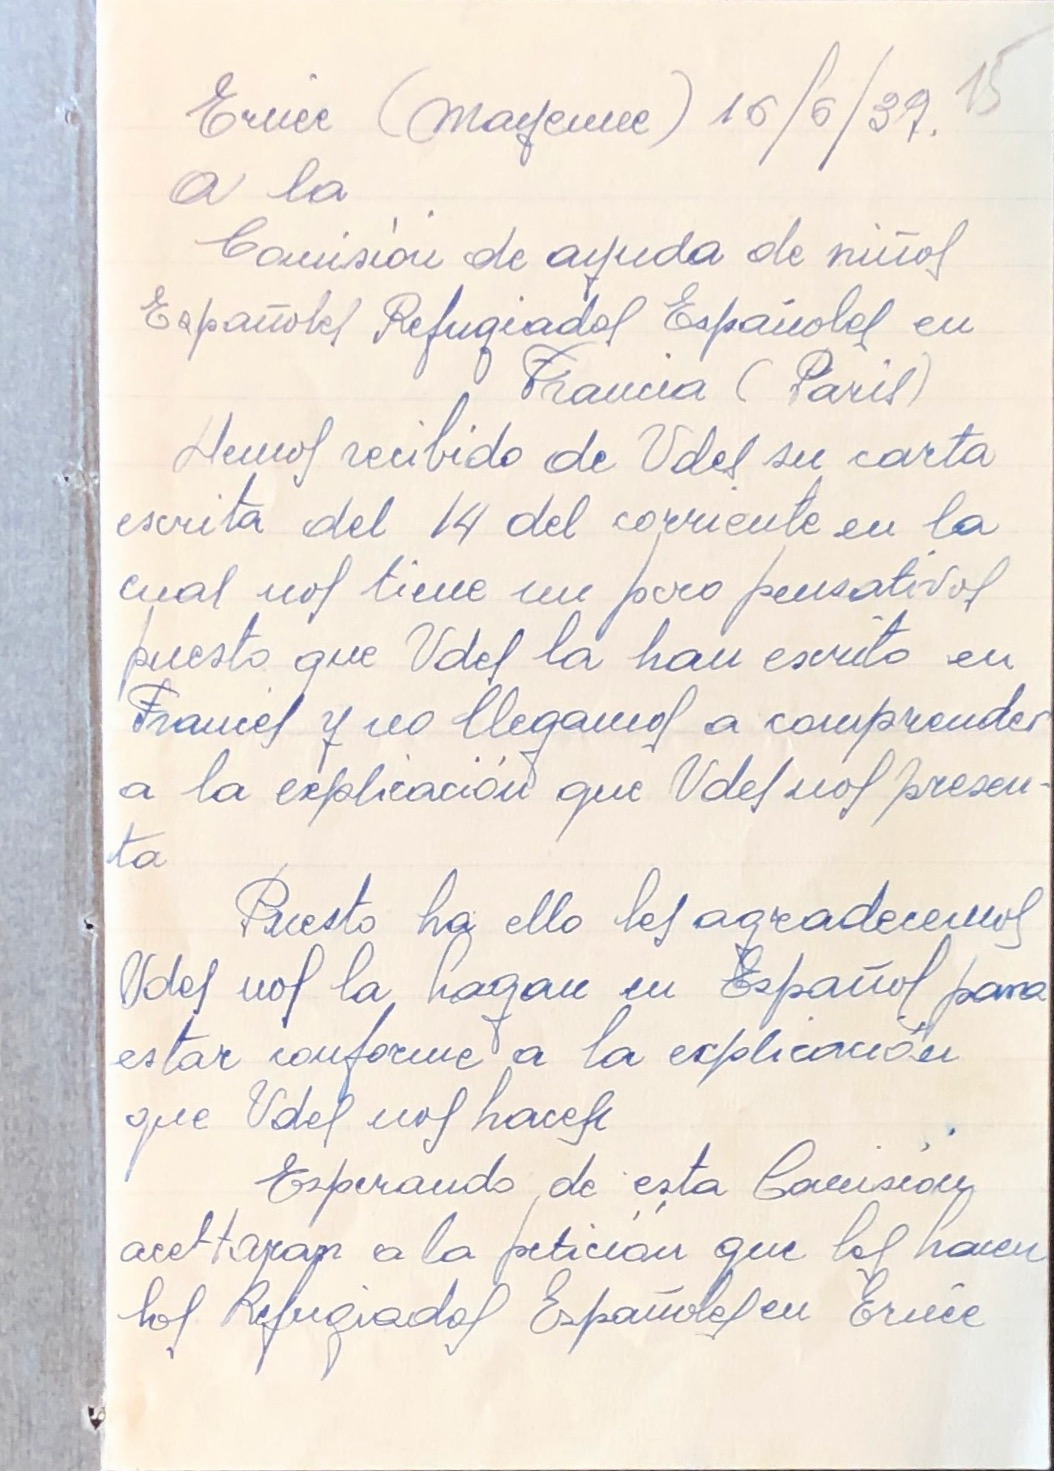 15
Ernée (Mayenne) 16/6/39.
A la
Comisión de ayuda de niños
Españoles Refugiados Españoles en
Francia (Paris)
Hemos recibido de Vdes su carta
escrita del 14 del corriente en la
cual nos tiene un poco pensativos
puesto que Vdes la han escrito en
Frances y no llegamos a comprender
a la explicación que Vdes nos presen-
ta
Puesto ha ello les agradecemos
Vdes nos la hagan en Español para
estar conforme a la explicación
que Vdes nos hacen
Esperando de esta Comisión
acettaran a la petición que les hacen
los Refugiados Españoles en Ernée